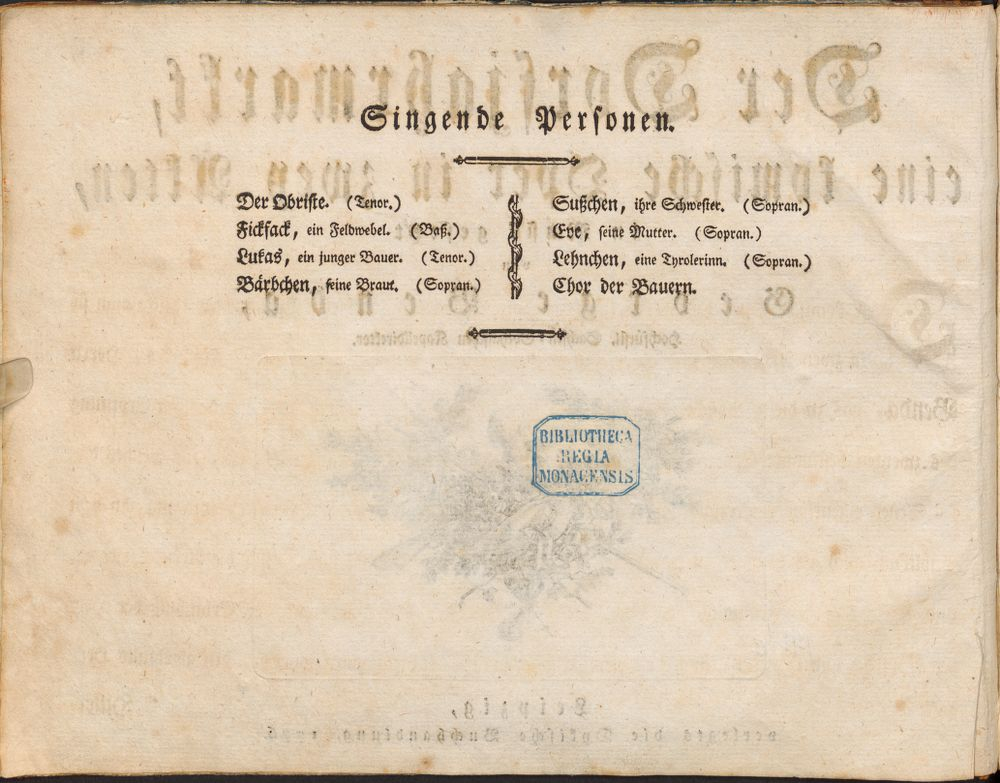 Singende Personen.
Der Obriste. (Tenor.)
Fickfack, ein Feldwebel. (Baß.)
Lukas, ein junger Bauer. (Tenor.)
Bärbchen, seine Braut. (Sopran.)
Sußchen, ihre Schwester. (Sopran.)
Eve, seine Mutter. (Sopran.)
Lehnchen, eine Tyrolerinn. (Sopran.)
Chor der Bauern.
BIBLIOTHECA
REGIA
MONACENSIS